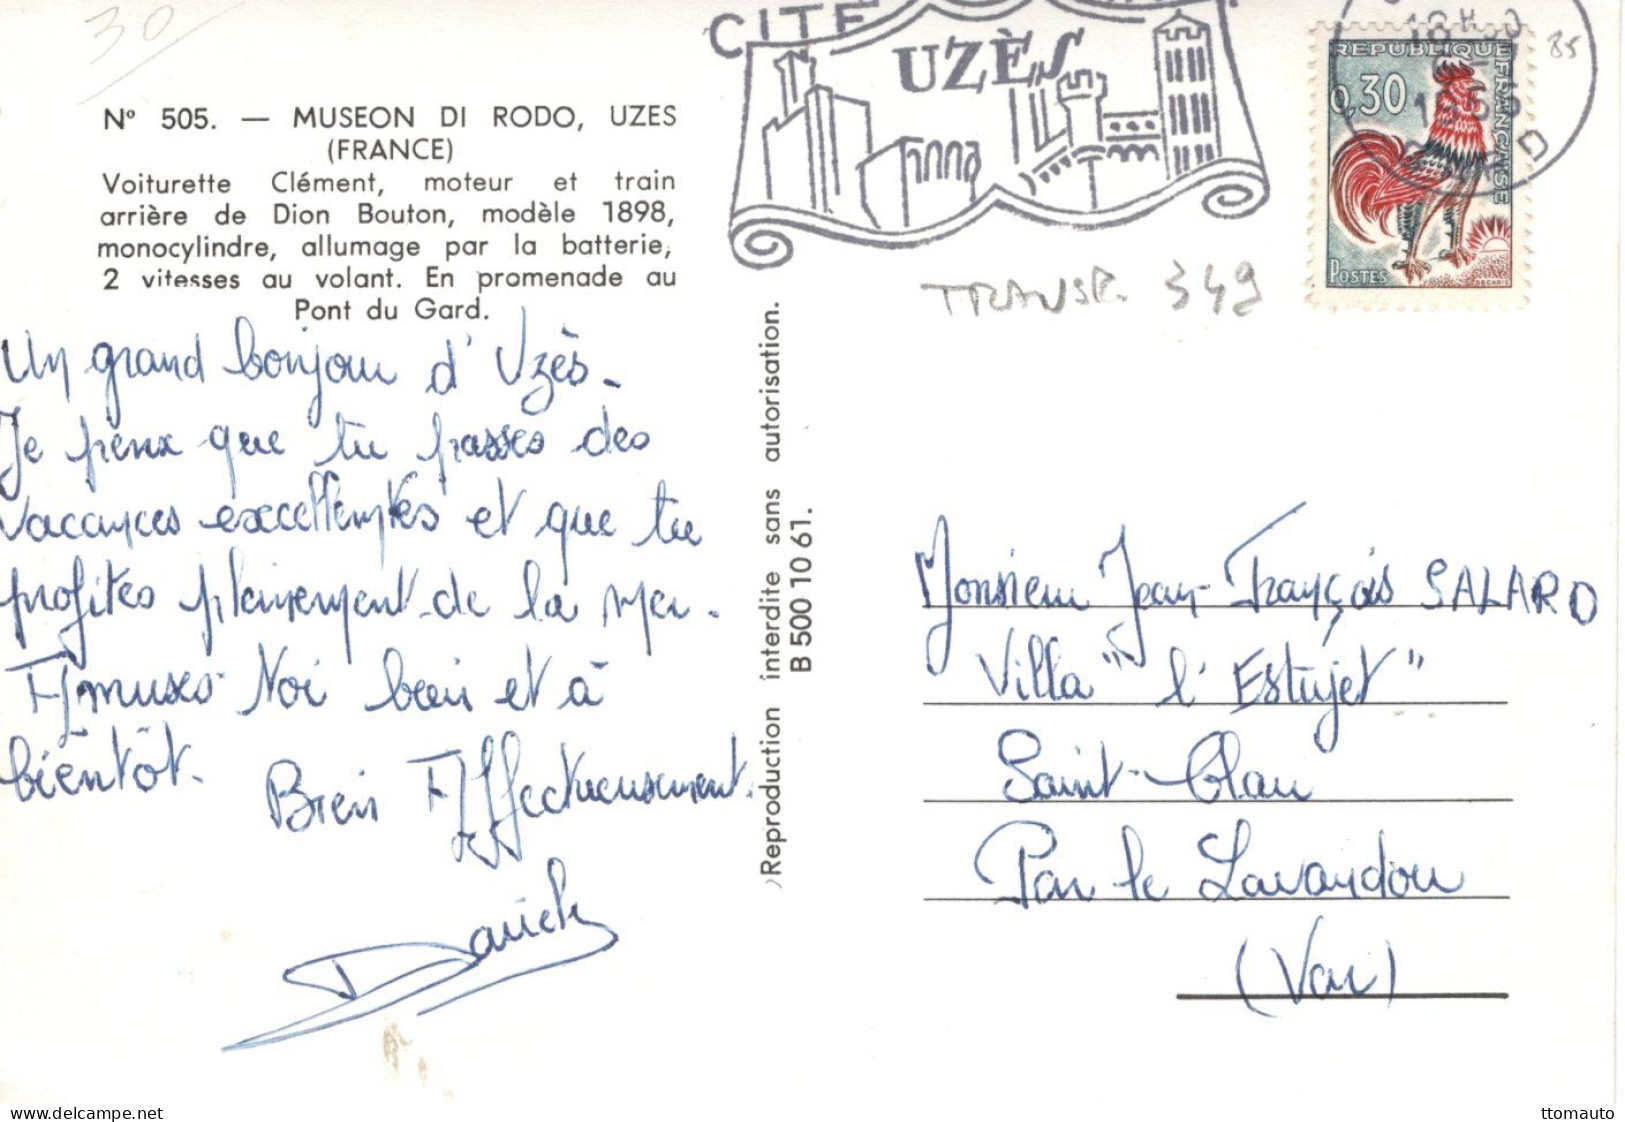 30
N° 505. — MUSEON DI RODO, UZES
(FRANCE)
Voiturette Clément, moteur et train
arrière de Dion Bouton, modèle 1898,
monocylindre, allumage par la batterie,
2 vitesses au volant. En promenade au
Pont du Gard.
Un grand bonjour d'Uzès.
Je pense que tu passes des
vacances excellentes et que tu
profites pleinement de la mer.
Amuses-toi bien et à
bientôt.
Bien Affectueusement.
Reproduction interdite sans autorisation.
B 500 10 61.
CITE
UZÈS
REPUBLIQUE FRANÇAISE
0,30
POSTES
DECARIS
85
TRANSP. 349
Monsieur Jean-François SALARD
Villa "l'Estujet"
Saint-Clair
Par le Lavandou
(Var)
www.delcampe.net
ttomauto